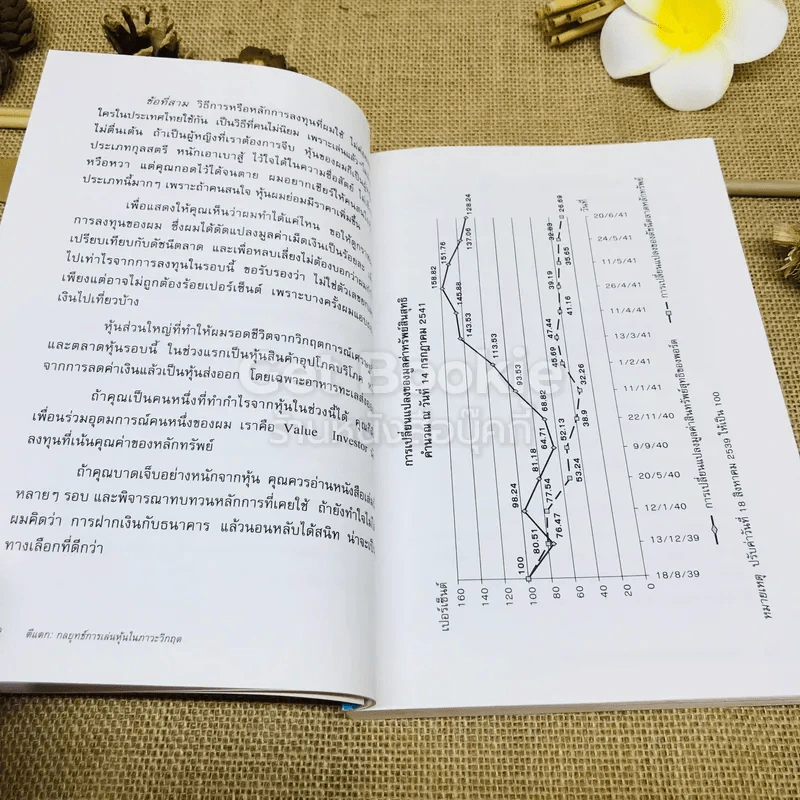 ข้อที่สาม วิธีการหรือหลักการลงทุนที่ผมใช้
ใครในประเทศไทยใช้กัน เป็นวิธีที่คนไม่นิยม เพราะเล่นแล้ว
ไม่ตื่นเต้น ถ้าเป็นผู้หญิงที่เราต้องการจีบ หุ้นของผมก็เป็น
ประเภทกุลสตรี หนักเอาเบาสู้ ไว้ใจได้ในความซื่อสัตย์
หรือหวา แต่คุณกอดไว้ได้จนตาย ผมอยากเชียร์ให้คน
ประเภทนี้มากๆ เพราะถ้าคนสนใจ หุ้นผมย่อมมีราคาเพิ่มขึ้น
เพื่อแสดงให้คุณเห็นว่าผมทำได้แค่ไหน ขอให้ดู
การลงทุนของผม ซึ่งผมได้ดัดแปลงมูลค่าเม็ดเงินเป็นร้อยละ
เปรียบเทียบกับดัชนีตลาด และเพื่อหลบเลี่ยงไม่ต้องบอกว่า
ไปเท่าไรจากการลงทุนในรอบนี้ ขอรับรองว่า ไม่ใช่ตัวเลข
เพียงแต่อาจไม่ถูกต้องร้อยเปอร์เซ็นต์ เพราะบางครั้งผม
เงินไปเที่ยวบ้าง
หุ้นส่วนใหญ่ที่ทำให้ผมรอดชีวิตจากวิกฤตการณ์
และตลาดหุ้นรอบนี้ ในช่วงแรกเป็นหุ้นสินค้าอุปโภคบริโภค
จากการลดค่าเงินแล้วเป็นหุ้นส่งออก โดยเฉพาะอาหารทะเล
ถ้าคุณเป็นคนหนึ่งที่ทำกำไรจากหุ้นในช่วงนี้ได้
เพื่อนร่วมอุดมการณ์คนหนึ่งของผม เราคือ Value Investor
ลงทุนที่เน้นคุณค่าของหลักทรัพย์
ถ้าคุณบาดเจ็บอย่างหนักจากหุ้น คุณควรอ่านหนังสือ
หลายๆ รอบ และพิจารณาทบทวนหลักการที่เคยใช้ ถ้ายังทำใจ
ผมคิดว่า การฝากเงินกับธนาคาร แล้วนอนหลับได้สนิท น่าจะ
ทางเลือกที่ดีกว่า
ตีแตก: กลยุทธ์การเล่นหุ้นในภาวะวิกฤต
การเปลี่ยนแปลงของมูลค่าทรัพย์สินสุทธิ
คำนวณ ณ วันที่ 14 กรกฎาคม 2541
เปอร์เซ็นต์
160
140
120
100
80
60
40
20
0
100
80.51
98.24
81.18
64.71
68.82
93.53
113.53
143.53
145.88
158.82
151.76
137.06
128.24
76.47
77.54
53.24
52.13
38.9
32.26
45.69
47.44
41.16
39.19
35.65
32.83
26.69
18/8/39
13/12/39
12/1/40
20/5/40
9/9/40
22/11/40
1/2/41
13/3/41
11/4/41
26/4/41
11/5/41
24/5/41
20/6/41
วันที่
การเปลี่ยนแปลงของมูลค่าสินทรัพย์สุทธิของพอร์ต
การเปลี่ยนแปลงของดัชนีตลาดหลักทรัพย์
หมายเหตุ ปรับค่าวันที่ 18 สิงหาคม 2539 ให้เป็น 100
Get Bookie
ร้านหนังสือบุ๊คกี้